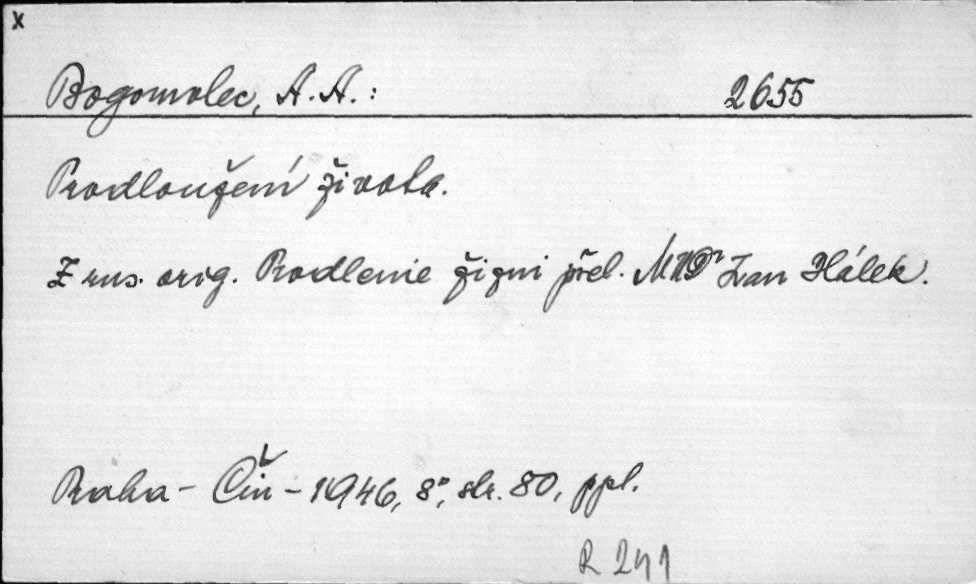 x
Bogomolec, A. A.: 2655
Prodloužení života.
Z rus. orig. Prodlenie žizni přel. MUDr Ivan Hálek.
Praha - Čin - 1946, 8°, str. 80, ppl.
R 241